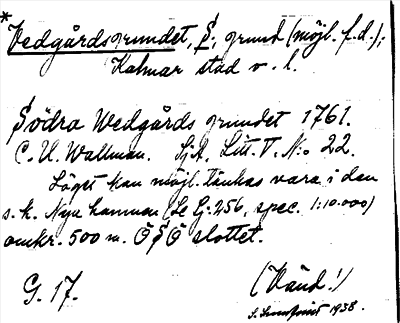 *Vedgårdsgrundet, S., grund (möjl. f.d.);
Kalmar stad v. l.
Södra Wedgårds grundet 1761.
C. U. Wallman. SjA, Litt. V. N:o 22.
Läget kan möjl. tänkas vara i den
s. k. Nya hamnen (Le G: 256, spec. 1:10.000)
omkr. 500 m. ÖSÖ slottet.
G. 17. (Vänd!)
1938.